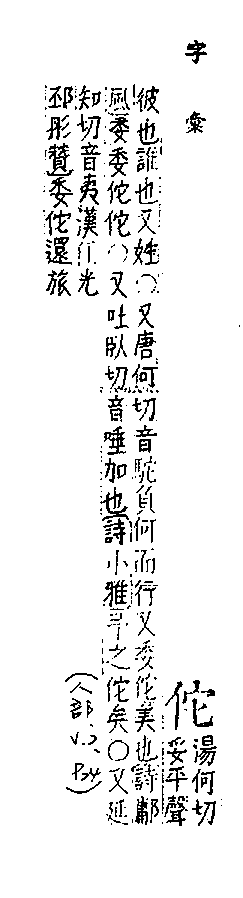 字彙
佗
湯何切
妥平聲
彼也誰也又姓○又唐何切音駝負何而行又委佗美也詩鄘
風委委佗佗○又吐臥切音唾加也詩小雅予之佗矣○又延
知切音夷漢 光
邳彤贊委佗還旅
(人部、V.2、P24)